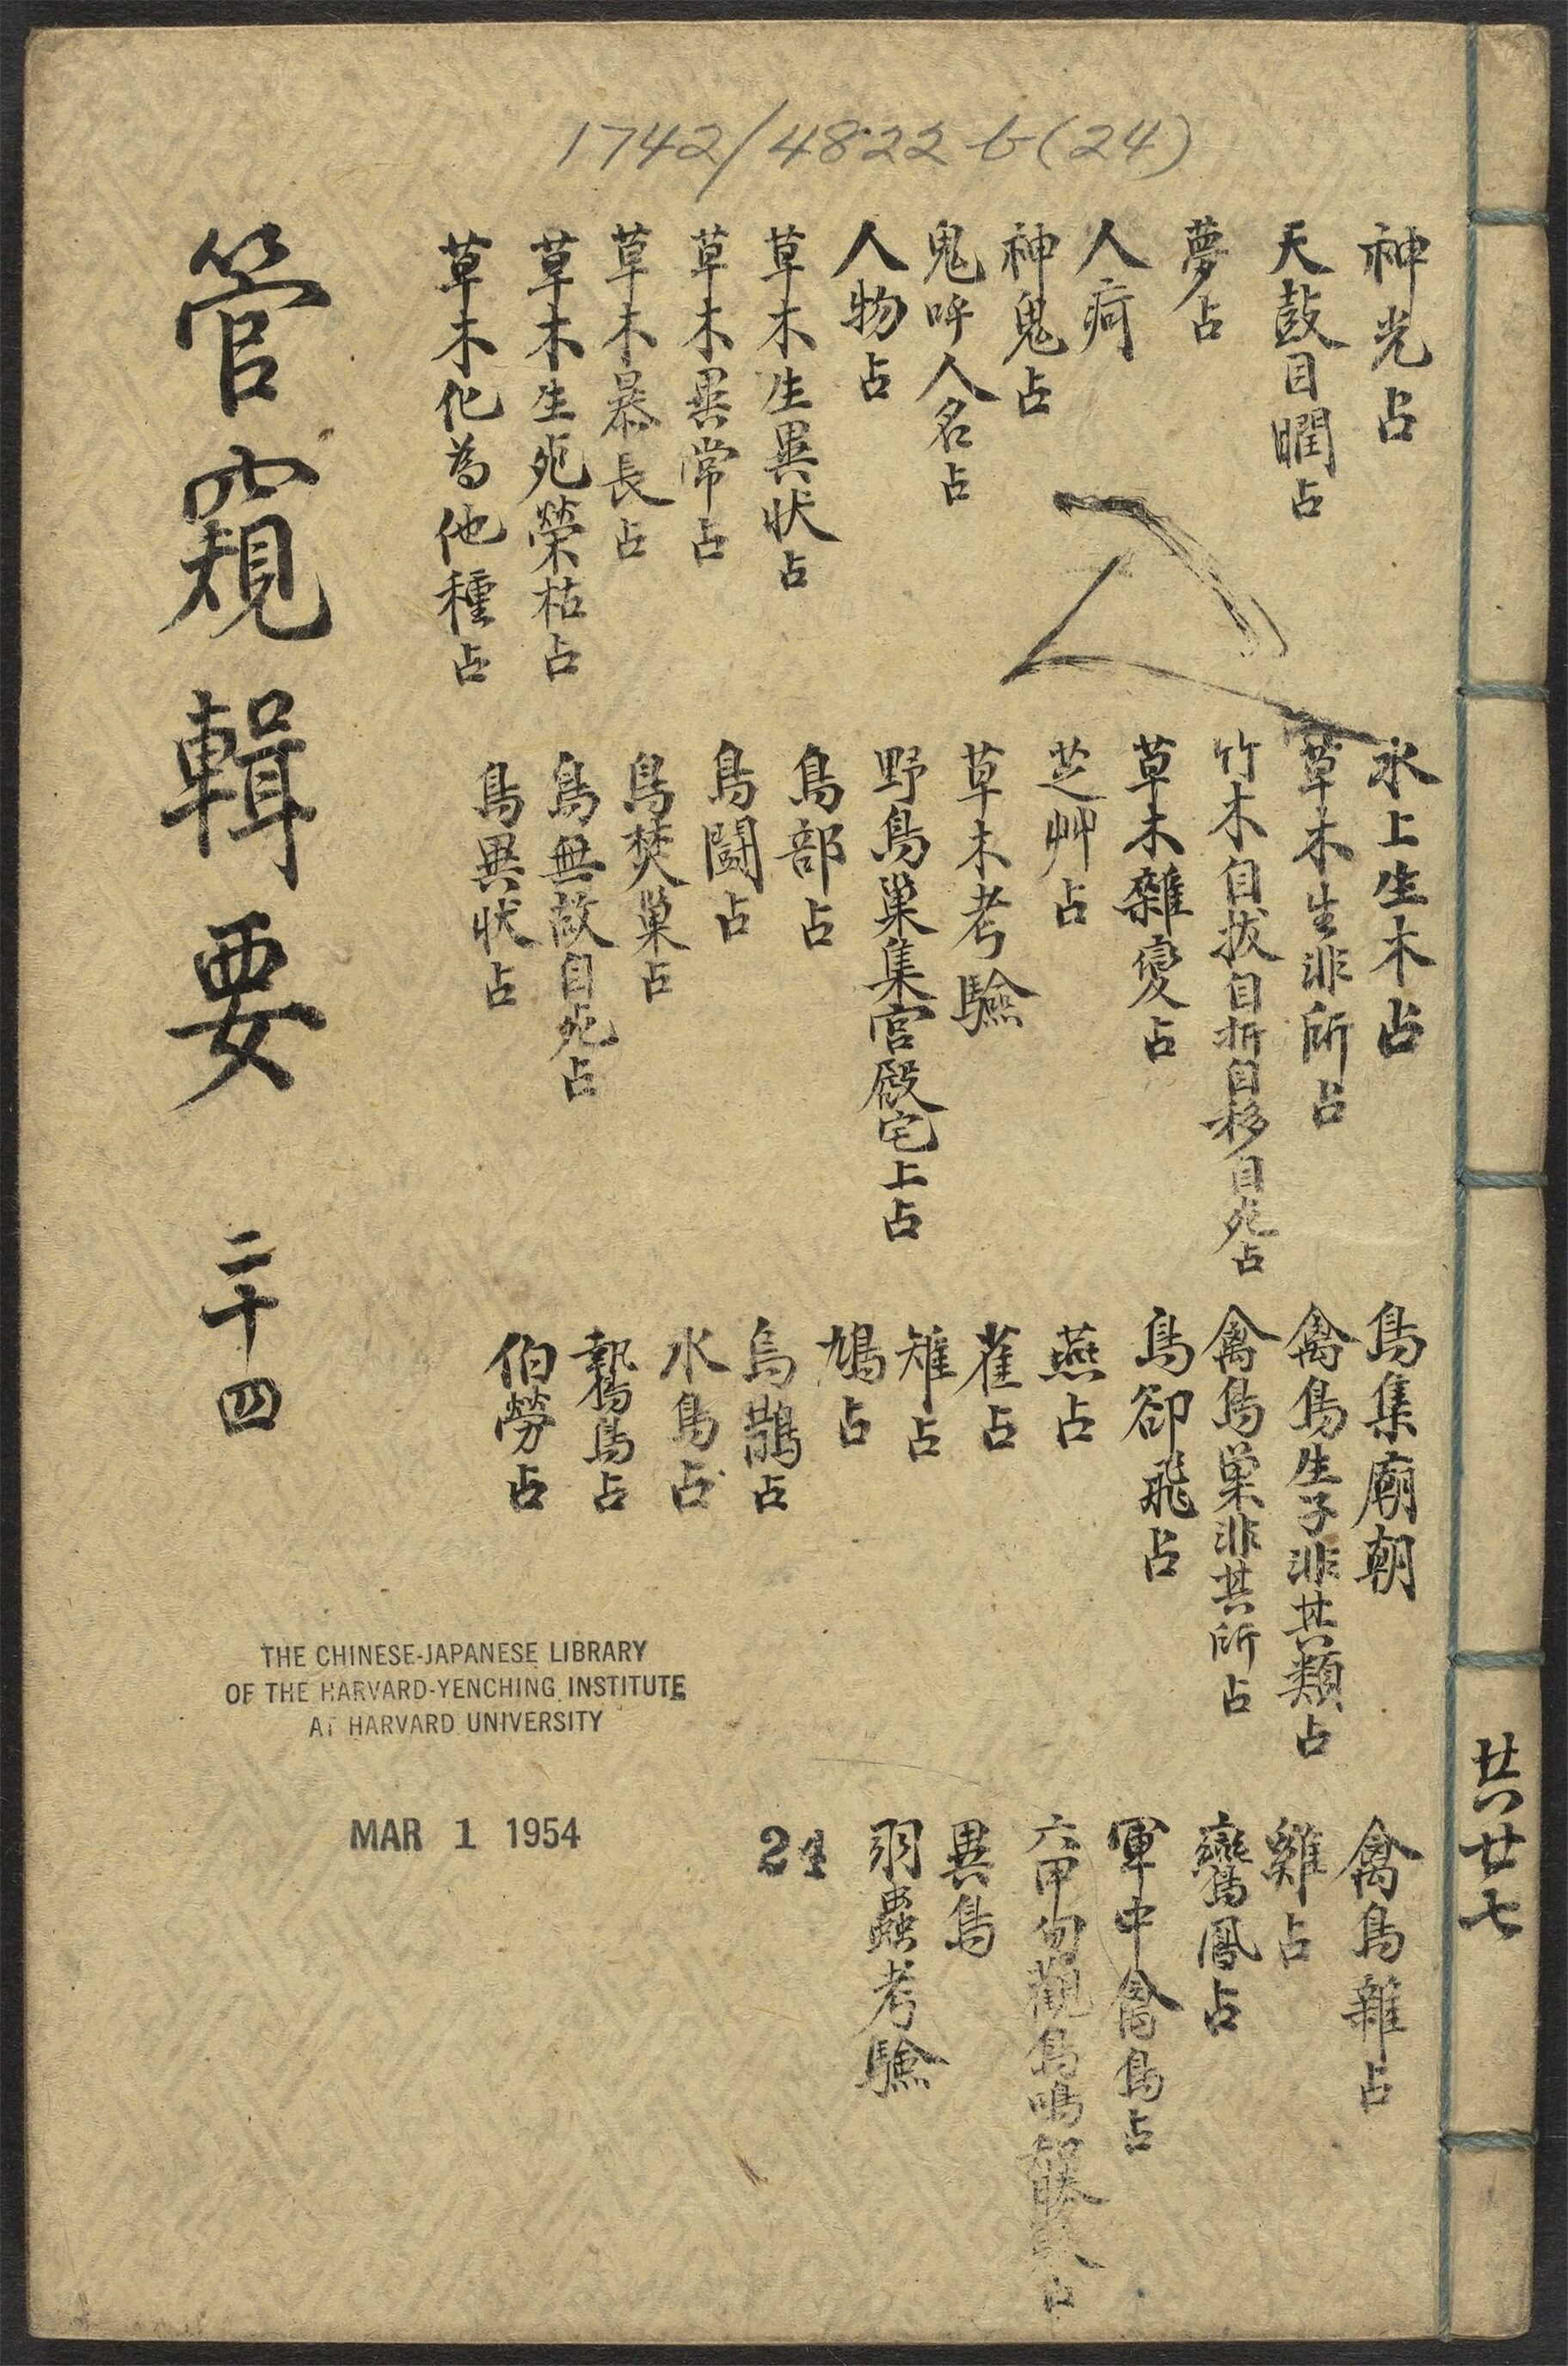 1742/4822 b(24)
神光占
天鼓目瞤占
夢占
人痾
神鬼占
鬼呼人名占
人物占
草木生異狀占
草木異常占
草木暴長占
草木生死榮枯占
草木化為他種占
水上生木占
草木生非所占
竹木自拔自折自移自死占
草木雜變占
芝艸占
草木考驗
野鳥巢集宮殿宅上占
鳥部占
鳥鬪占
鳥焚巢占
鳥無故自死占
鳥異狀占
鳥集廟朝
禽鳥生子非其類占
禽鳥巢非其所占
鳥卻飛占
燕占
雀占
雉占
鳩占
烏鵲占
水鳥占
鷙鳥占
伯勞占
禽鳥雜占
雞占
鸞鳳占
軍中禽鳥占
六甲旬觀鳥鳴知勝負占
異鳥
羽蟲考驗
管窺輯要 二十四
共廿七
THE CHINESE-JAPANESE LIBRARY
OF THE HARVARD-YENCHING INSTITUTE
AT HARVARD UNIVERSITY
MAR 1 1954
24